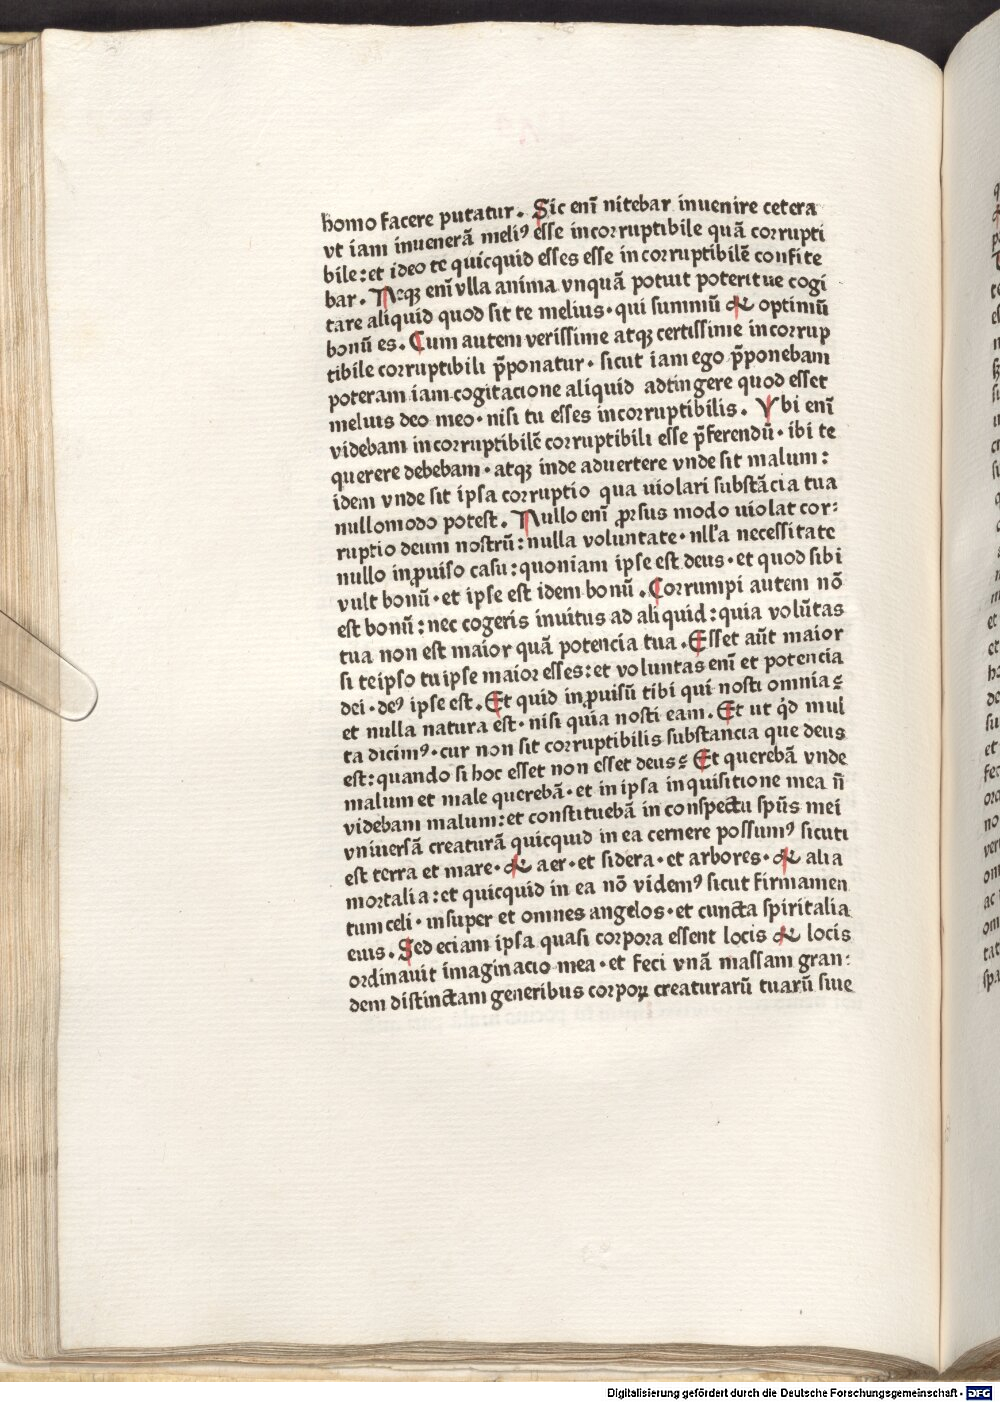 homo facere putatur. Sic eni̅ nitebar inuenire cetera
vt iam inuenera̅ meliꝰ esse incorruptibile qua̅ corrupti
bile: et ideo te quicquid esses esse incorruptibile̅ confite
bar. Neqꝫ eni̅ vlla anima vnqua̅ potuit poterit ue cogi
tare aliquid quod sit te melius· qui summu̅ & optimu̅
bonu̅ es. Cum autem verissime atqꝫ certissime incorrup
tibile corruptibili p̅ponatur· sicut iam ego p̅ponebam
poteram iam cogitacione aliquid adtingere quod esset
melius deo meo· nisi tu esses incorruptibilis. Vbi eni̅
videbam incorruptibile̅ corruptibili esse p̅ferendu̅· ibi te
querere debebam· atqꝫ inde aduertere vnde sit malum:
idem vnde sit ipsa corruptio qua uiolari substa̅cia tua
nullomodo potest. Nullo eni̅ ꝓrsus modo uiolat cor:
ruptio deum nostru̅: nulla voluntate· nll'a necessitate
nullo inꝓuiso casu: quoniam ipse est deus· et quod sibi
vult bonu̅· et ipse est idem bonu̅. Corrumpi autem no̅
est bonu̅: nec cogeris inuitus ad aliquid: quia volu̅tas
tua non est maior qua̅ potencia tua. Esset au̅t maior
si teipso tu ipse maior esses: et voluntas eni̅ et potencia
dei· deꝰ ipse est. Et quid inꝓuisu̅ tibi qui nosti omnia?
et nulla natura est· nisi quia nosti eam. Et ut q̇d mul
ta dicimꝰ· cur non sit corruptibilis substancia que deus
est: quando si hoc esset non esset deus? Et quereba̅ vnde
malum et male quereba̅· et in ipsa inquisitione mea n̅
videbam malum: et constitueba̅ in conspectu sp̅us mei
vniuersa̅ creatura̅ quicquid in ea cernere possumꝰ sicuti
est terra et mare· & aer· et sidera· et arbores· & alia
mortalia: et quicquid in ea no̅ videmꝰ sicut firmamen
tum celi· insuper et omnes angelos· et cuncta spiritalia
eius. Sed eciam ipsa quasi corpora essent locis & locis
ordinauit imaginacio mea· et feci vna̅ massam gran:
dem distinctam generibus corpoꝝ creaturaru̅ tuaru̅ siue
Digitalisierung gefördert durch die Deutsche Forschungsgemeinschaft - DFG